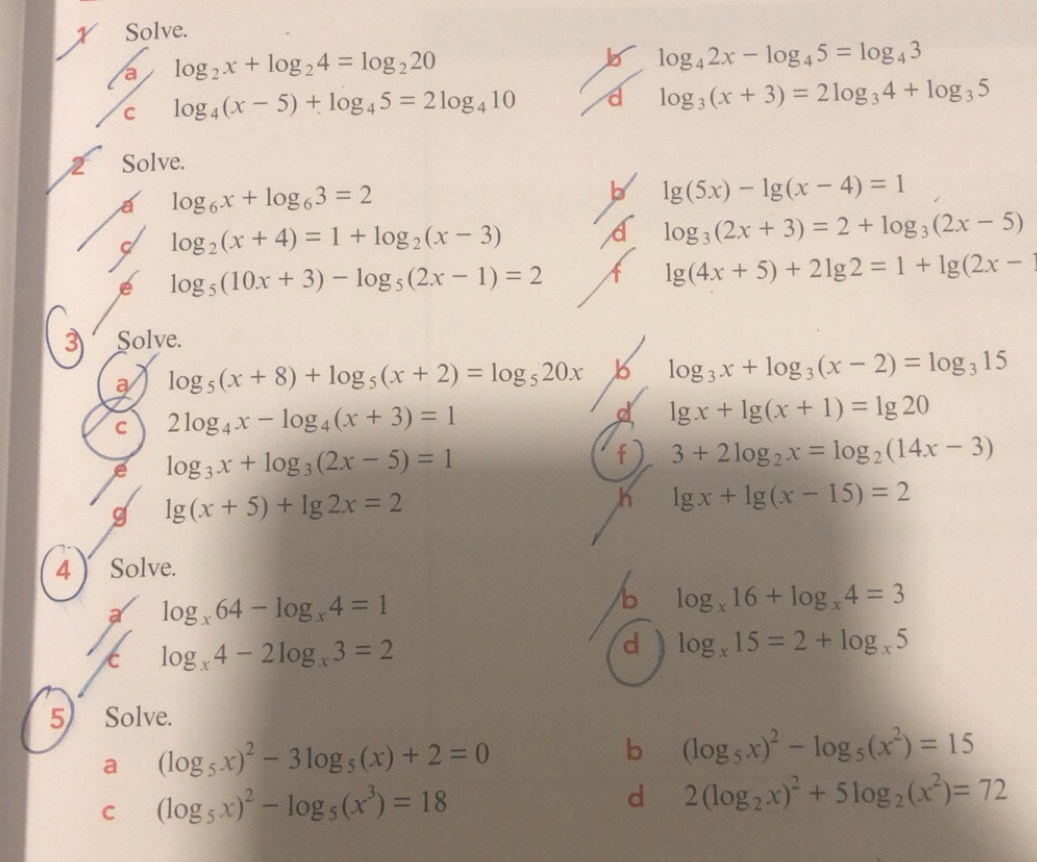 1 Solve.
a log₂x + log₂4 = log₂20 b log₄2x − log₄5 = log₄3
c log₄(x − 5) + log₄5 = 2log₄10 d log₃(x + 3) = 2log₃4 + log₃5
2 Solve.
a log₆x + log₆3 = 2 b lg(5x) − lg(x − 4) = 1
c log₂(x + 4) = 1 + log₂(x − 3) d log₃(2x + 3) = 2 + log₃(2x − 5)
e log₅(10x + 3) − log₅(2x − 1) = 2 f lg(4x + 5) + 2lg2 = 1 + lg(2x −
3 Solve.
a log₅(x + 8) + log₅(x + 2) = log₅20x b log₃x + log₃(x − 2) = log₃15
c 2log₄x − log₄(x + 3) = 1 d lgx + lg(x + 1) = lg20
e log₃x + log₃(2x − 5) = 1 f 3 + 2log₂x = log₂(14x − 3)
g lg(x + 5) + lg2x = 2 h lgx + lg(x − 15) = 2
4 Solve.
a logₓ64 − logₓ4 = 1 b logₓ16 + logₓ4 = 3
c logₓ4 − 2logₓ3 = 2 d logₓ15 = 2 + logₓ5
5 Solve.
a (log₅x)² − 3log₅(x) + 2 = 0 b (log₅x)² − log₅(x²) = 15
c (log₅x)² − log₅(x³) = 18 d 2(log₂x)² + 5log₂(x²)= 72